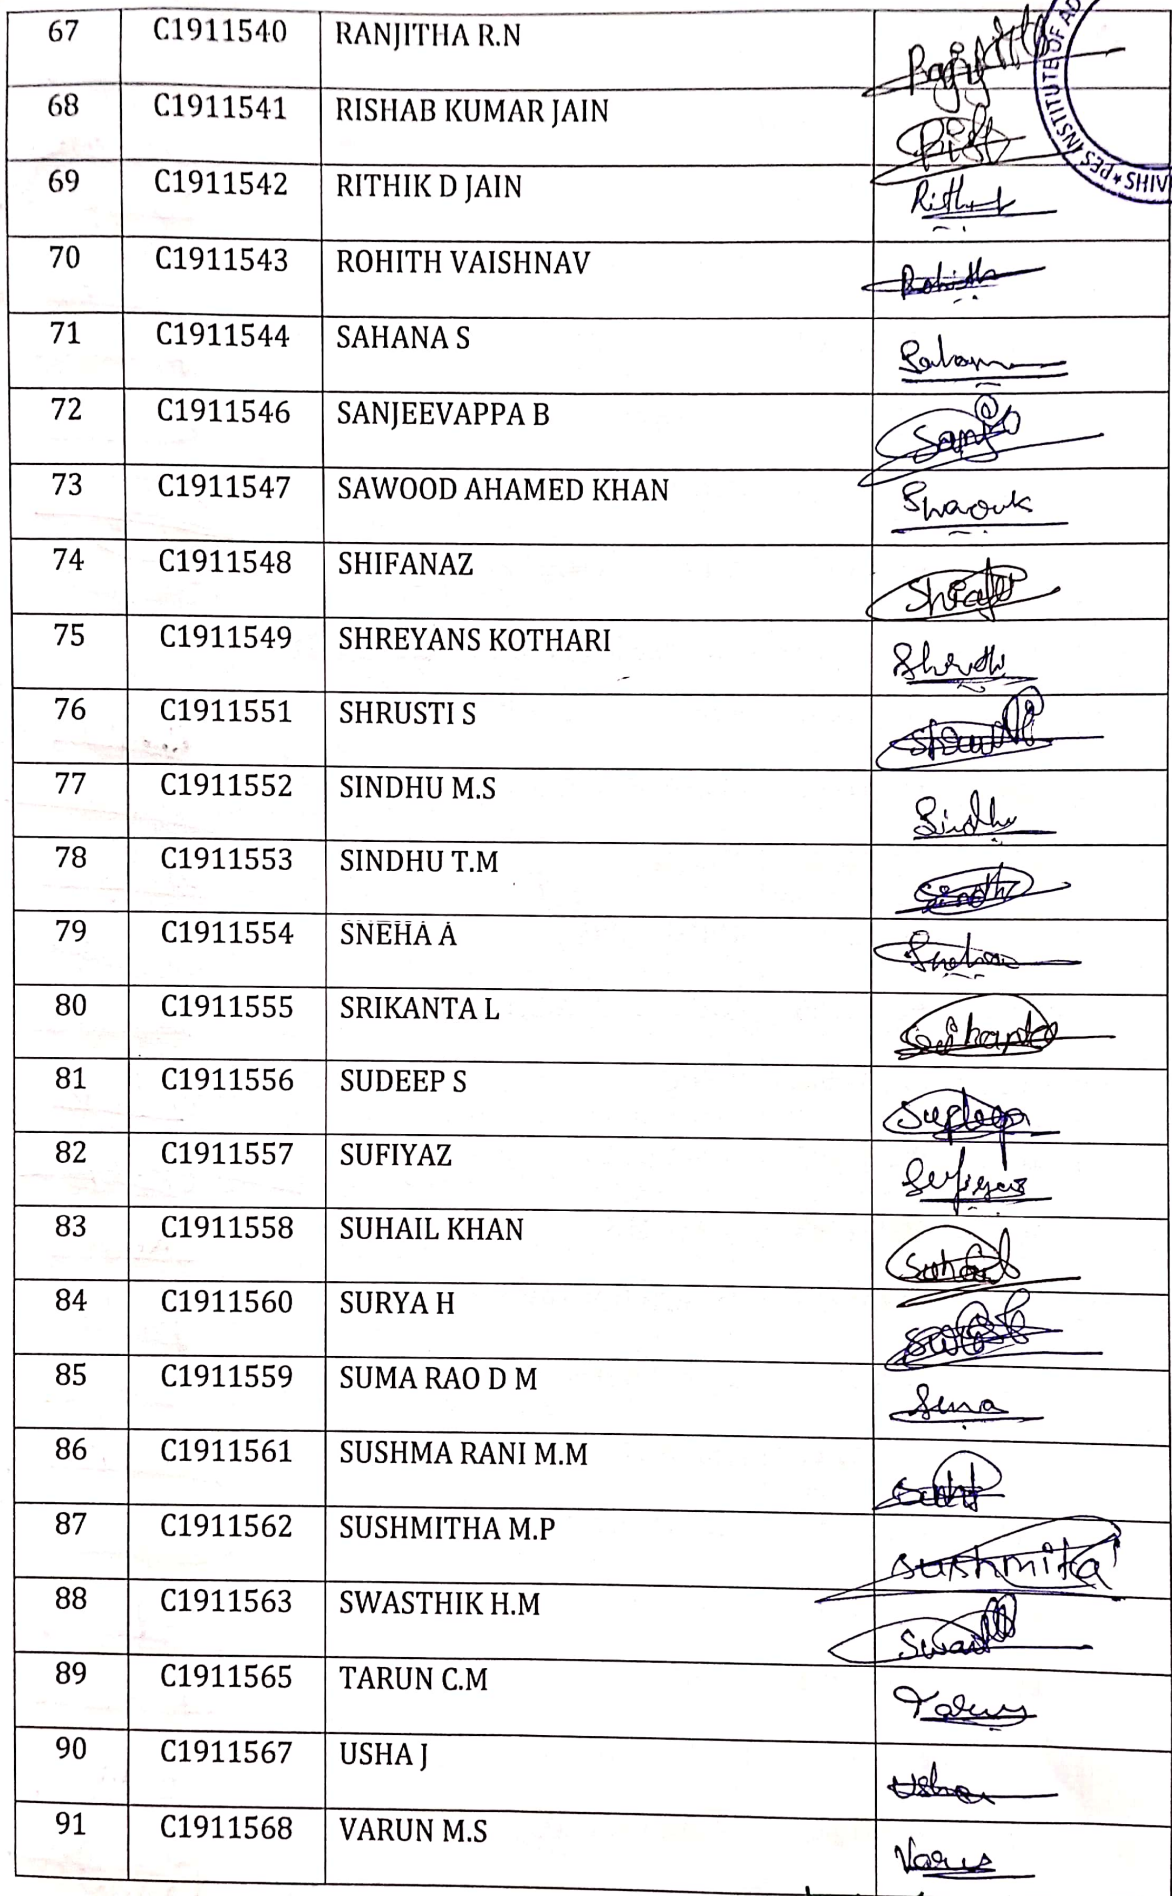 67 C1911540 RANJITHA R.N
68 C1911541 RISHAB KUMAR JAIN
69 C1911542 RITHIK D JAIN
70 C1911543 ROHITH VAISHNAV Rohith
71 C1911544 SAHANA S
72 C1911546 SANJEEVAPPA B
73 C1911547 SAWOOD AHAMED KHAN
74 C1911548 SHIFANAZ
75 C1911549 SHREYANS KOTHARI
76 C1911551 SHRUSTI S
77 C1911552 SINDHU M.S Sindhu
78 C1911553 SINDHU T.M Sindh
79 C1911554 SNEHA A Sneha
80 C1911555 SRIKANTA L Srikanta
81 C1911556 SUDEEP S Sudeep
82 C1911557 SUFIYAZ Sufiyaz
83 C1911558 SUHAIL KHAN Suhail
84 C1911560 SURYA H
85 C1911559 SUMA RAO D M Suma
86 C1911561 SUSHMA RANI M.M
87 C1911562 SUSHMITHA M.P Sushmita
88 C1911563 SWASTHIK H.M
89 C1911565 TARUN C.M Tarun
90 C1911567 USHA J Usha
91 C1911568 VARUN M.S Varun
PES INSTITUTE OF